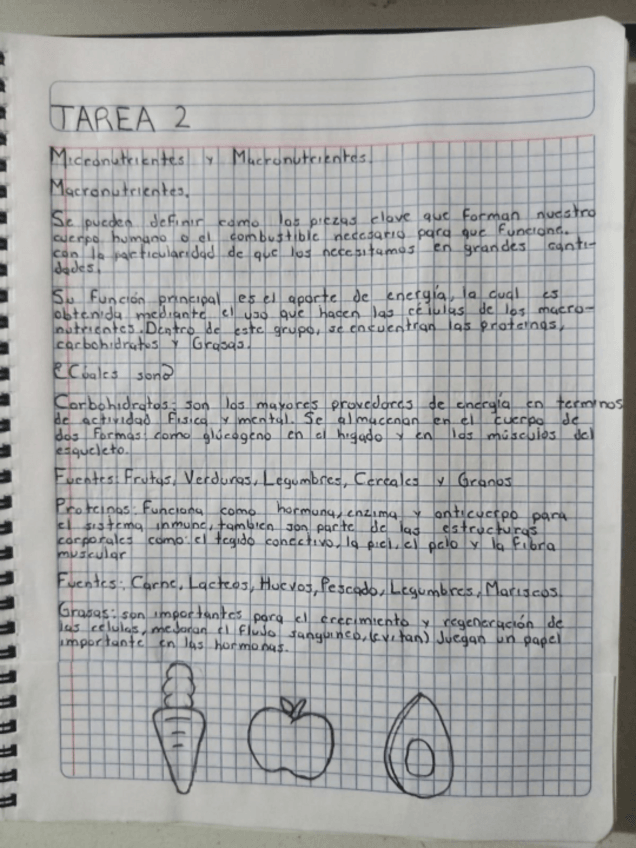 TAREA 2
Micronutrientes y Macronutrientes.
Macronutrientes.
Se pueden definir como las piezas clave que forman nuestro
cuerpo humano o el combustible necesario para que funcione.
con la particularidad de que los necesitamos en grandes canti-
dades.
Su función principal es el aporte de energía, la cual es
obtenida mediante el uso que hacen las células de los macro-
nutrientes. Dentro de este grupo, se encuentran las proteínas,
carbohidratos y Grasas.
¿Cúales son?
Carbohidratos: son los mayores provedores de energía en terminos
de actividad Física y mental. Se almacenan en el cuerpo de
dos Formas: como glúcogeno en el higado y en los músculos del
esqueleto.
Fuentes: Frutas, Verduras, Legumbres, Cereales y Granos
Proteinas: Funciona como hormona, enzima y anticuerpo para
el sistema inmune, tambien son parte de las estructuras
corporales como: el tegido conectivo, la piel, el pelo y la Fibra
muscular
Fuentes: Carne, Lacteos, Huevos, Pescado, Legumbres, Mariscos.
Grasas: son importantes para el crecimiento y regeneración de
las células, mejoran el flujo sanguineo, (evitan) Juegan un papel
importante en las hormonas.